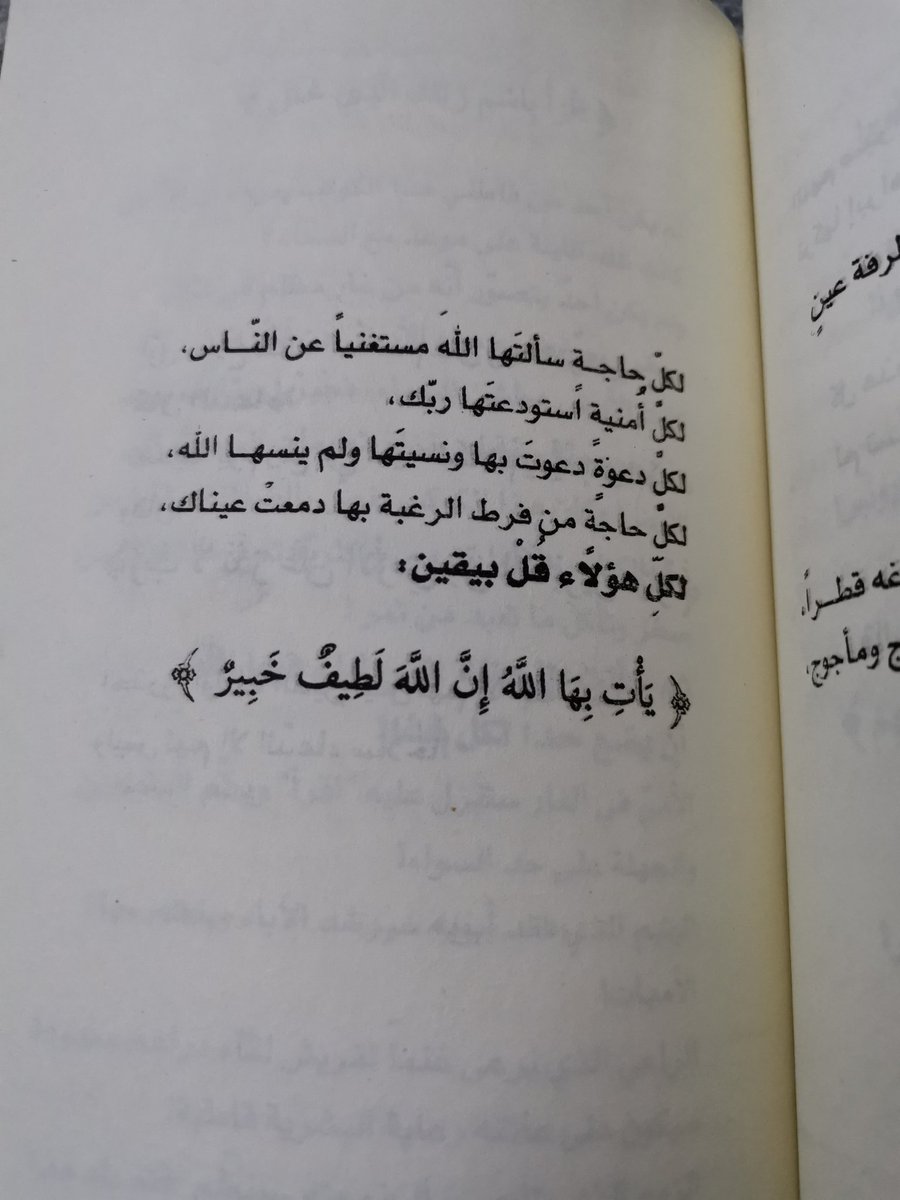 لكلّ حاجـة سألتَها اللهَ مستغنياً عن النّـاس،
لكلّ أُمنية اًستودعتَها ربّك،
لكلّ دعوةً دعوتَ بها ونسيتَها ولم ينسهـا الله،
لكلّ حاجةً من فرط الرغبة بها دمعتْ عيناك،
لكلِّ هؤلاًء قُلْ بيقين:
﴿ يَأْتِ بِهَا اللَّهُ إِنَّ اللَّهَ لَطِيفٌ خَبِيرٌ ﴾
طرفة عينٍ
قطـراً،
ومأجوج،